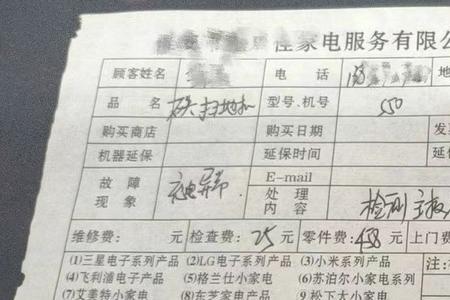 佳家电服务有限公
顾客姓名 电话 地
品名 扫地机 型号、机号 550
购买商店 购买日期 发
机器延保 延保时间
故障现象 异常 E-mail 处理内容 检测主板
维修费: 元 检查费: 25 元 零件费: 458 元 上门费
(1)三星电子系列产品 (2)LG电子系列产品 (3)小米系列产品
(4)飞利浦电子产品 (5)格兰仕小家电 (6)苏泊尔小家电系列
(7)艾美特小家电 (8)东芝家电产品 9)松下大小家电